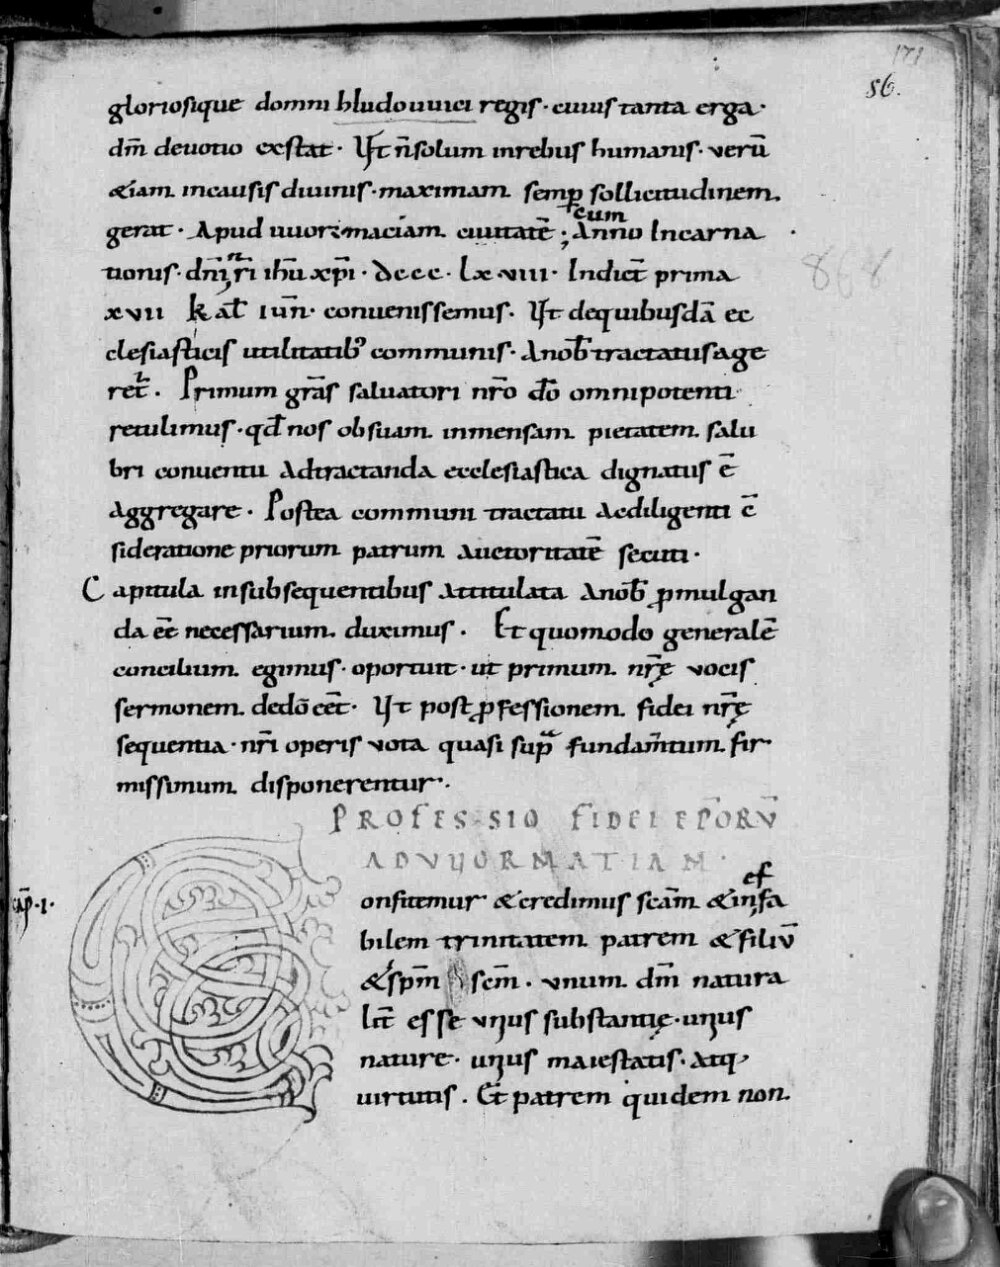 171
86.
gloriosique domni hludouuici regis · cuius tanta erga ·
dm̄ deuotio exstat · Ut n̄ solum in rebus humanis · verū
&iam in causis diuinis · maximam semp̱ sollicitudinem
gerat · Apud uuormaciam ciuitatē ; cum Anno Incarna
tionis · dn̄i n̄ri ihū xp̄i · dccc · lx viii · Indict̄ prima
xvii kal̄ iun̄ · conuenissemus · Ut de quibusdā ec
clesiasticis utilitatib; communis · A nob̄ tractatus age
ret̄ · Primum gr̄as saluatori nr̄o dō omnipotenti
retulimus · qd̄ nos ob suam inmensam pietatem salu
bri conuentu Ad tractanda ecclesiastica dignatus ē
Aggregare · Postea communi tractatu Ac diligenti c̄
sideratione priorum patrum auctoritatē secuti ·
Capitula in subsequentibus Attitulata A nob̄ p̱mulgan
da eē necessarium duximus · Et quomodo generalē
concilium egimus · oportuit · ut primum nr̄ę vocis
sermonem de dō eēt · Ut post p̱fessionem fidei nr̄ę
sequentia · nr̄i operis vota quasi sup̄ fundam̄tum fir
missimum disponerentur ·
PROFESSIO FIDEI EP̄ORŪ
AD VUORMATIAM ·
cap̄ · I · Confitemur & credimus sc̄am & ineffa
bilem trinitatem patrem & filiū
& sp̄m sc̄m · vnum dm̄ natura
lit̄ esse vnius substantię · unius
nature · unius maiestatis · atq;
uirtutis · Et patrem quidem non
868